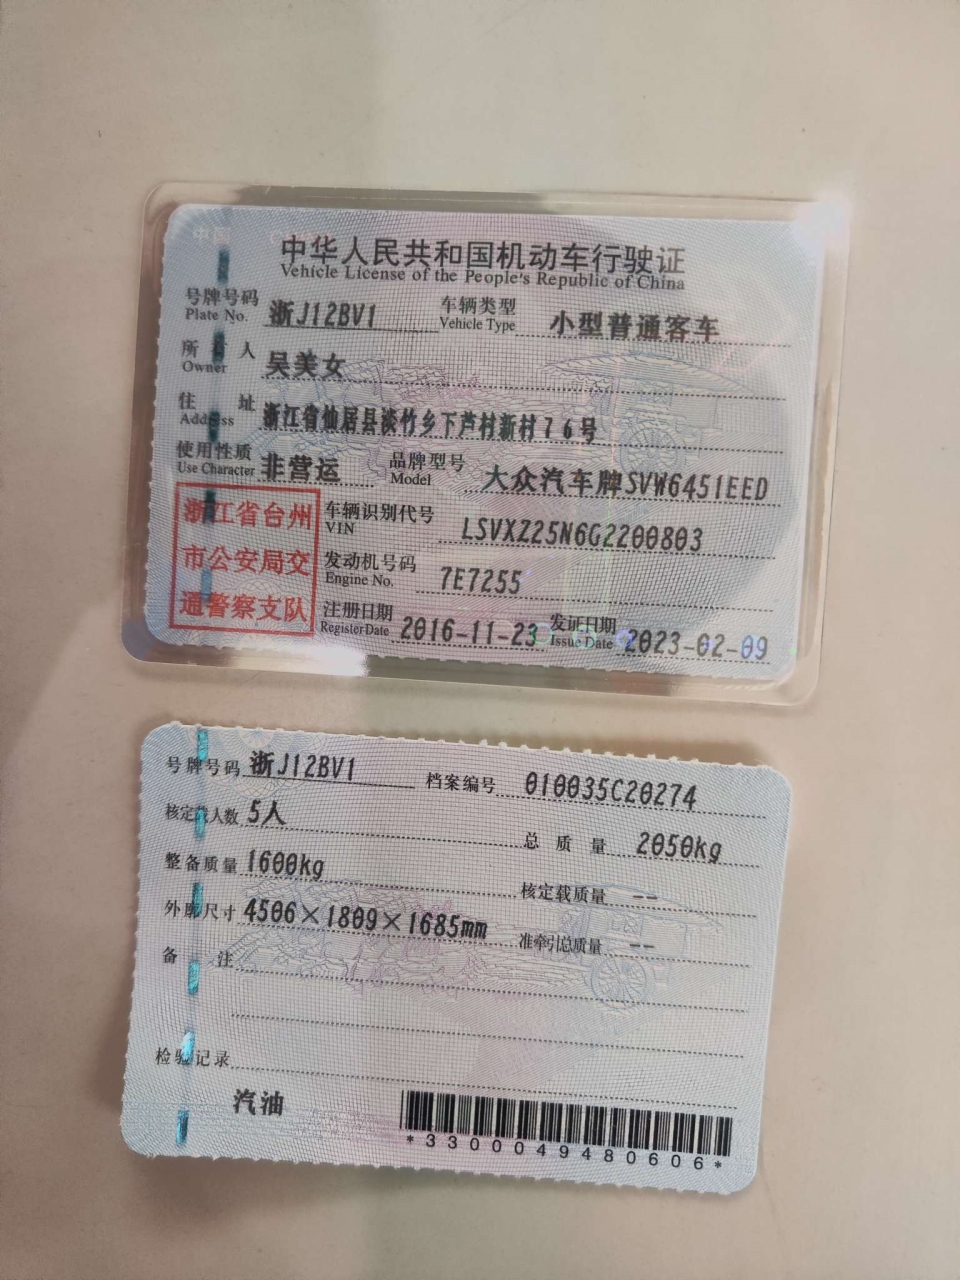 中华人民共和国机动车行驶证
Vehicle License of the People's Republic of China
号牌号码 浙J12BV1 车辆类型 小型普通客车
Plate No. Vehicle Type
所有人 吴美女
Owner
住址 浙江省仙居县淡竹乡下芦村新村76号
Address
使用性质 非营运 品牌型号 大众汽车牌SVW6451EED
Use Character Model
浙江省台州 车辆识别代号 LSVXZ25N6G2200803
VIN
市公安局交 发动机号码 7E7255
Engine No.
通警察支队 注册日期 2016-11-23 发证日期 2023-02-09
Register Date Issue Date
号牌号码 浙J12BV1 档案编号 010035C20274
核定载人数 5人 总质量 2050kg
整备质量 1600kg 核定载质量 --
外廓尺寸 4506×1809×1685mm 准牵引总质量 --
备注
检验记录
汽油
*3300049480606*